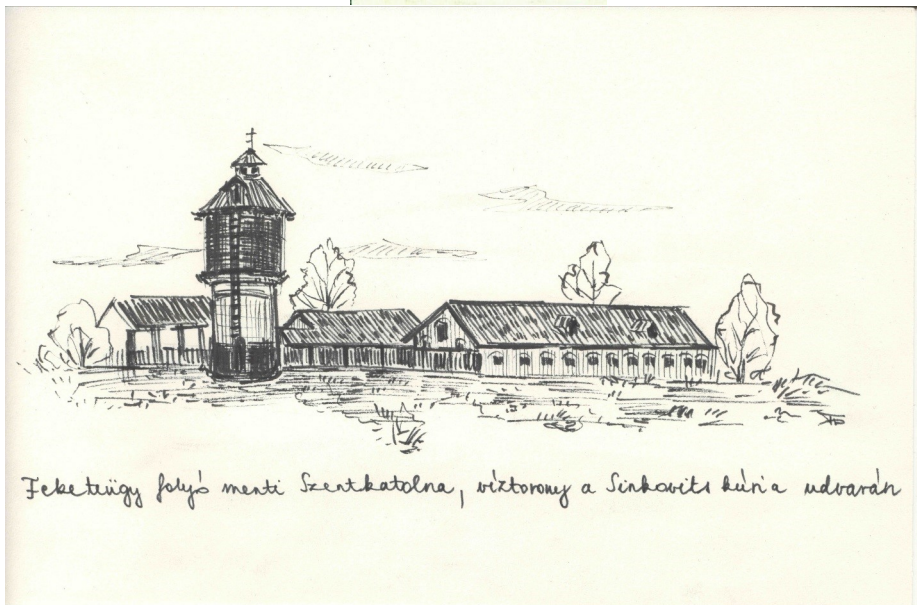 Feketeügy folyó menti Szentkatolna, víztorony a Sinkovits kúria udvarán